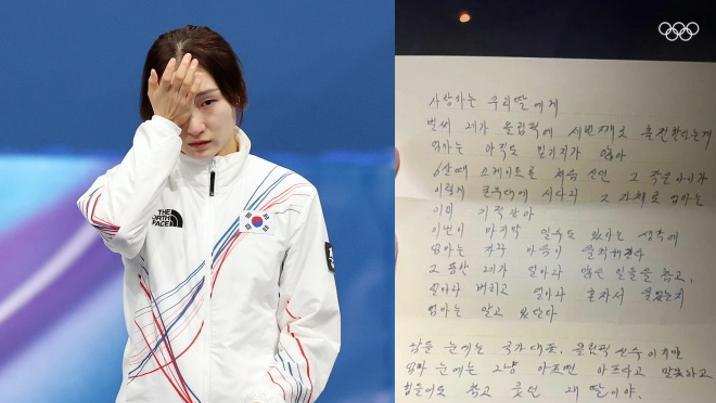 THE
NORTH
FACE
사랑하는 우리딸에게
벌써 네가 올림픽에 세번째로 출전한다는게
엄마는 아직도 믿기지가 않아
6살때 스케이트를 처음 신던 그 작은 아이가
이렇게 큰무대에 서다니 그 자체로 엄마는
이미 기적같아
이번이 마지막 일수도 있다는 생각에
엄마는 자꾸 마음이 울컥해진다
그 동안 네가 얼마나 많은 일들을 참고,
얼마나 버티고 얼마나 혼자서 울었는지
엄마는 알고 있단다
남들 눈에는 국가대표, 올림픽 선수 이지만
엄마 눈에는 그냥 아프면 아프다고 말못하고
힘들어도 참고 웃던 내 딸이야.